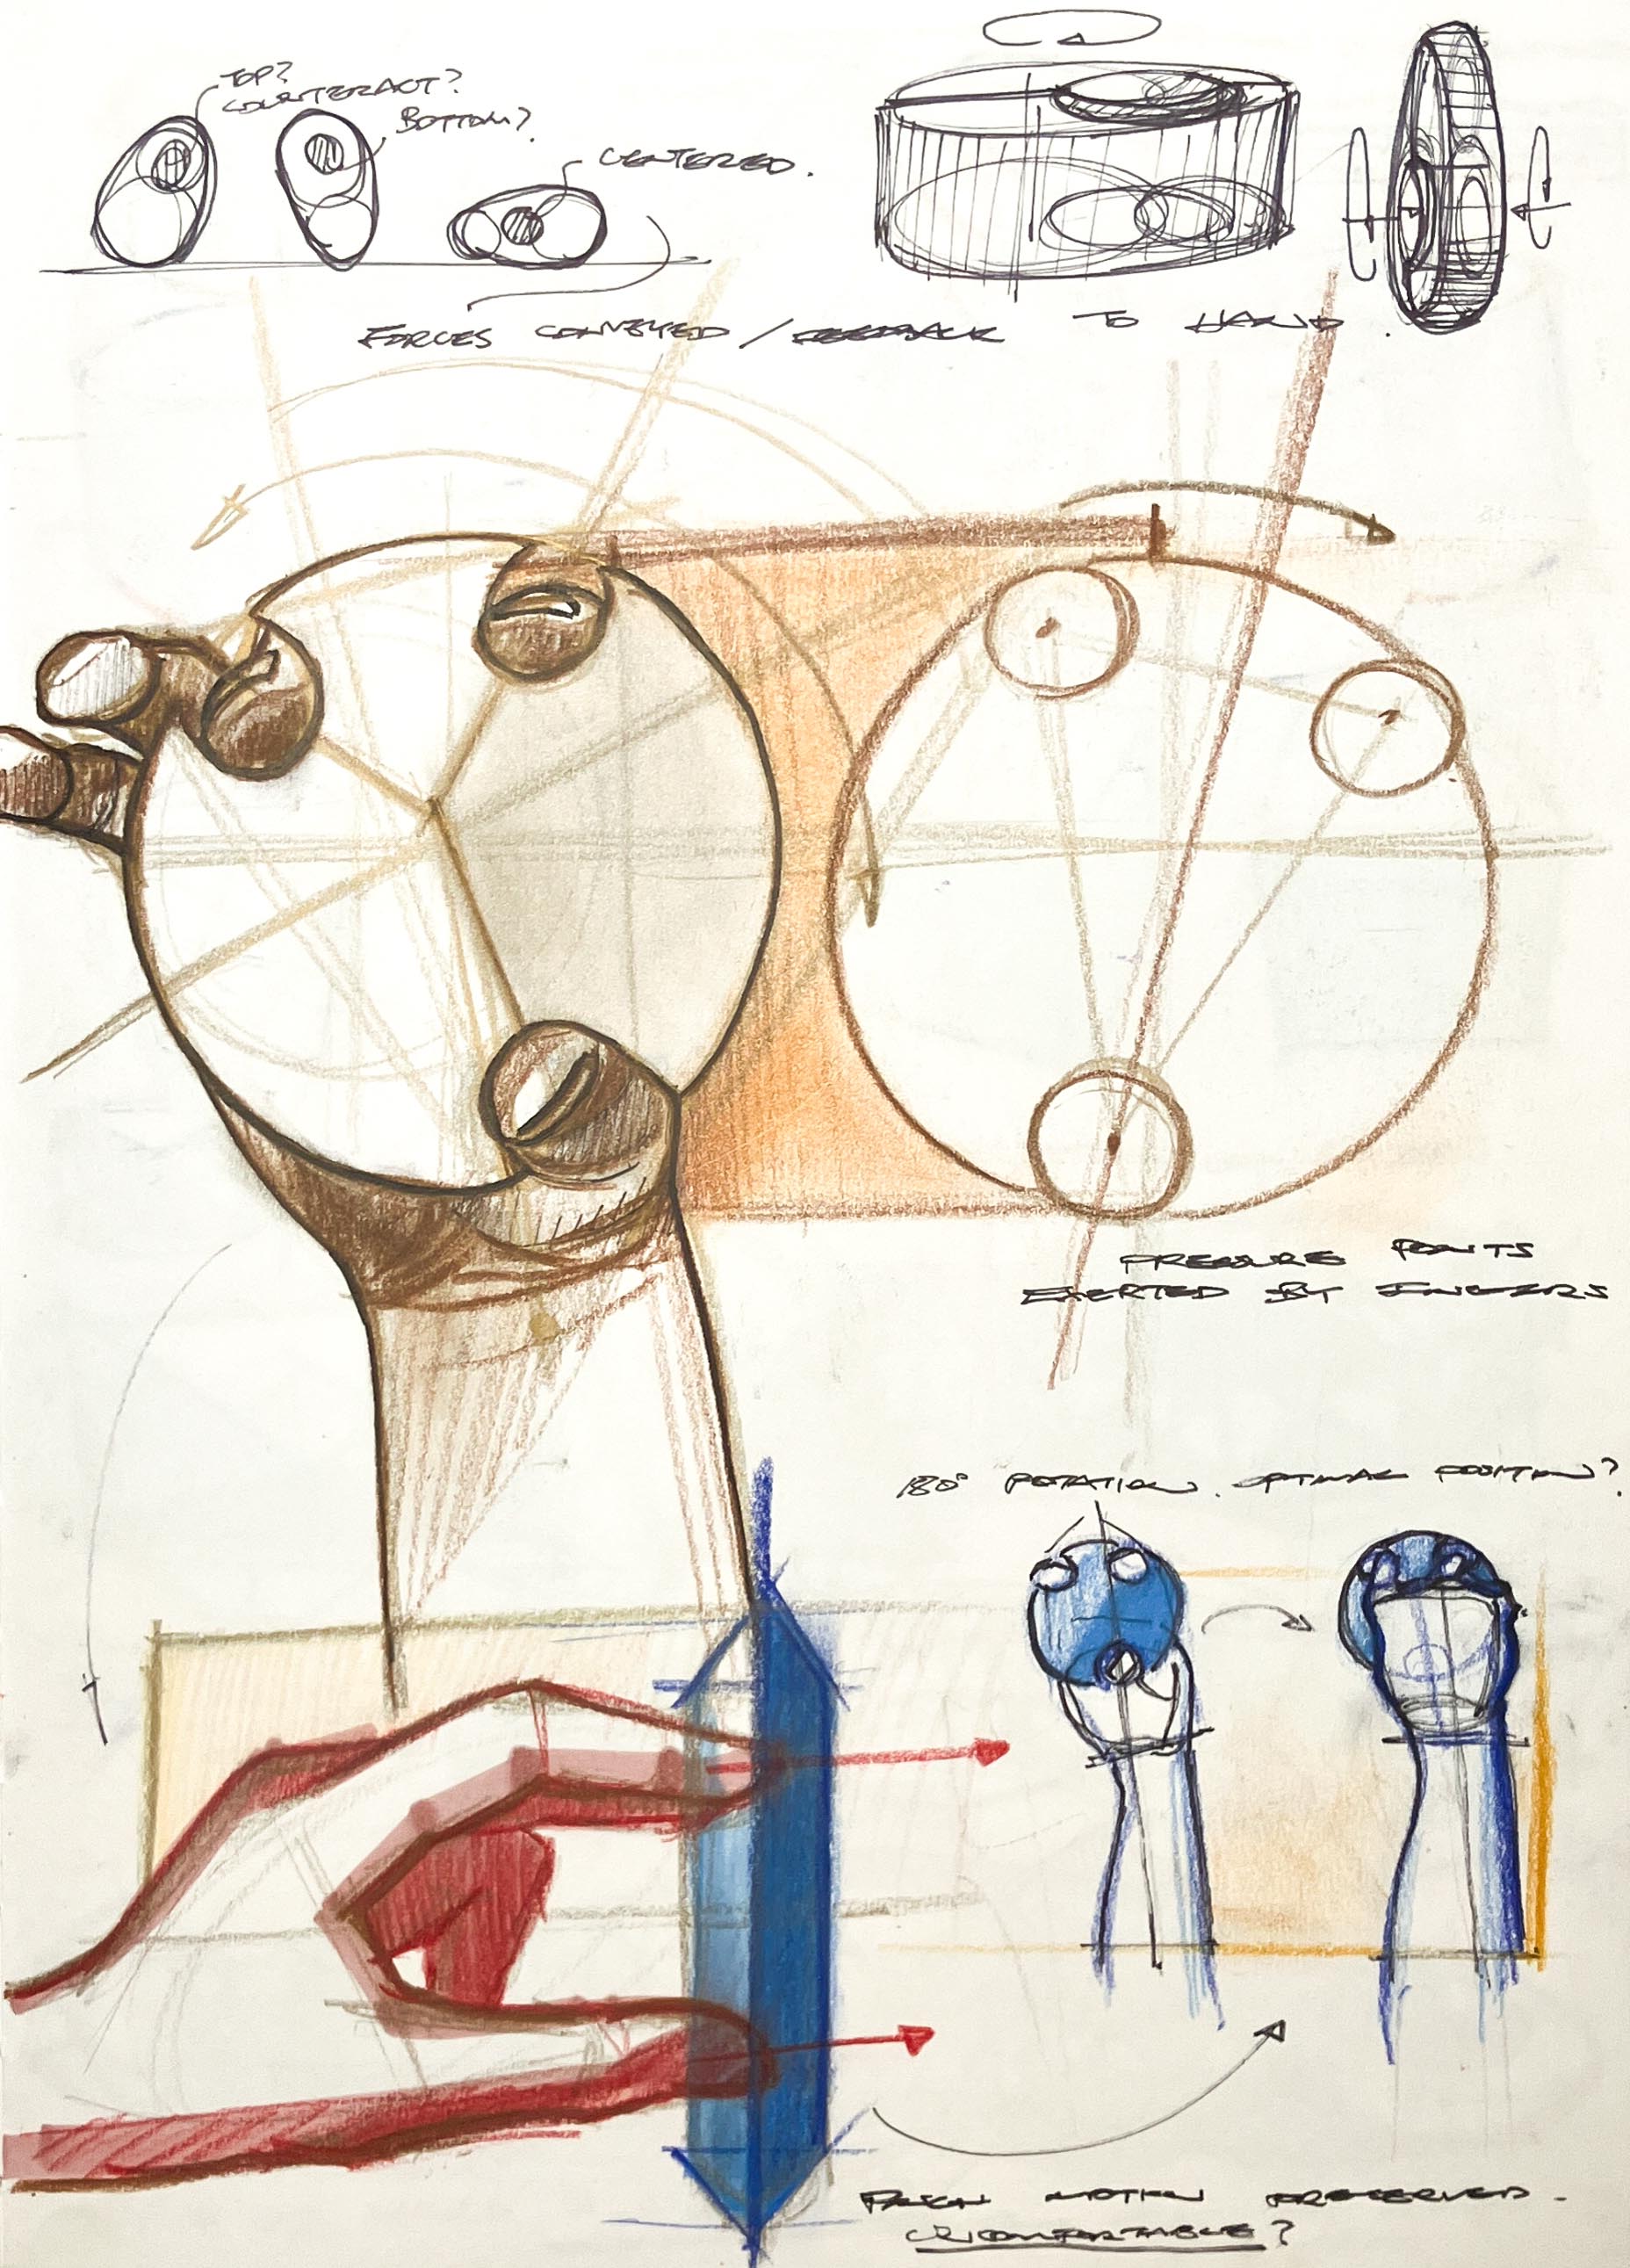 TOP?
COUNTERACT?
BOTTOM?
CENTERED.
FORCES CONVEYED / FEEDBACK TO HAND.
PRESSURE POINTS
EXERTED BY FINGERS
180° ROTATION. OPTIMAL POSITION?
MOTION PRESERVED.
UNCOMFORTABLE?